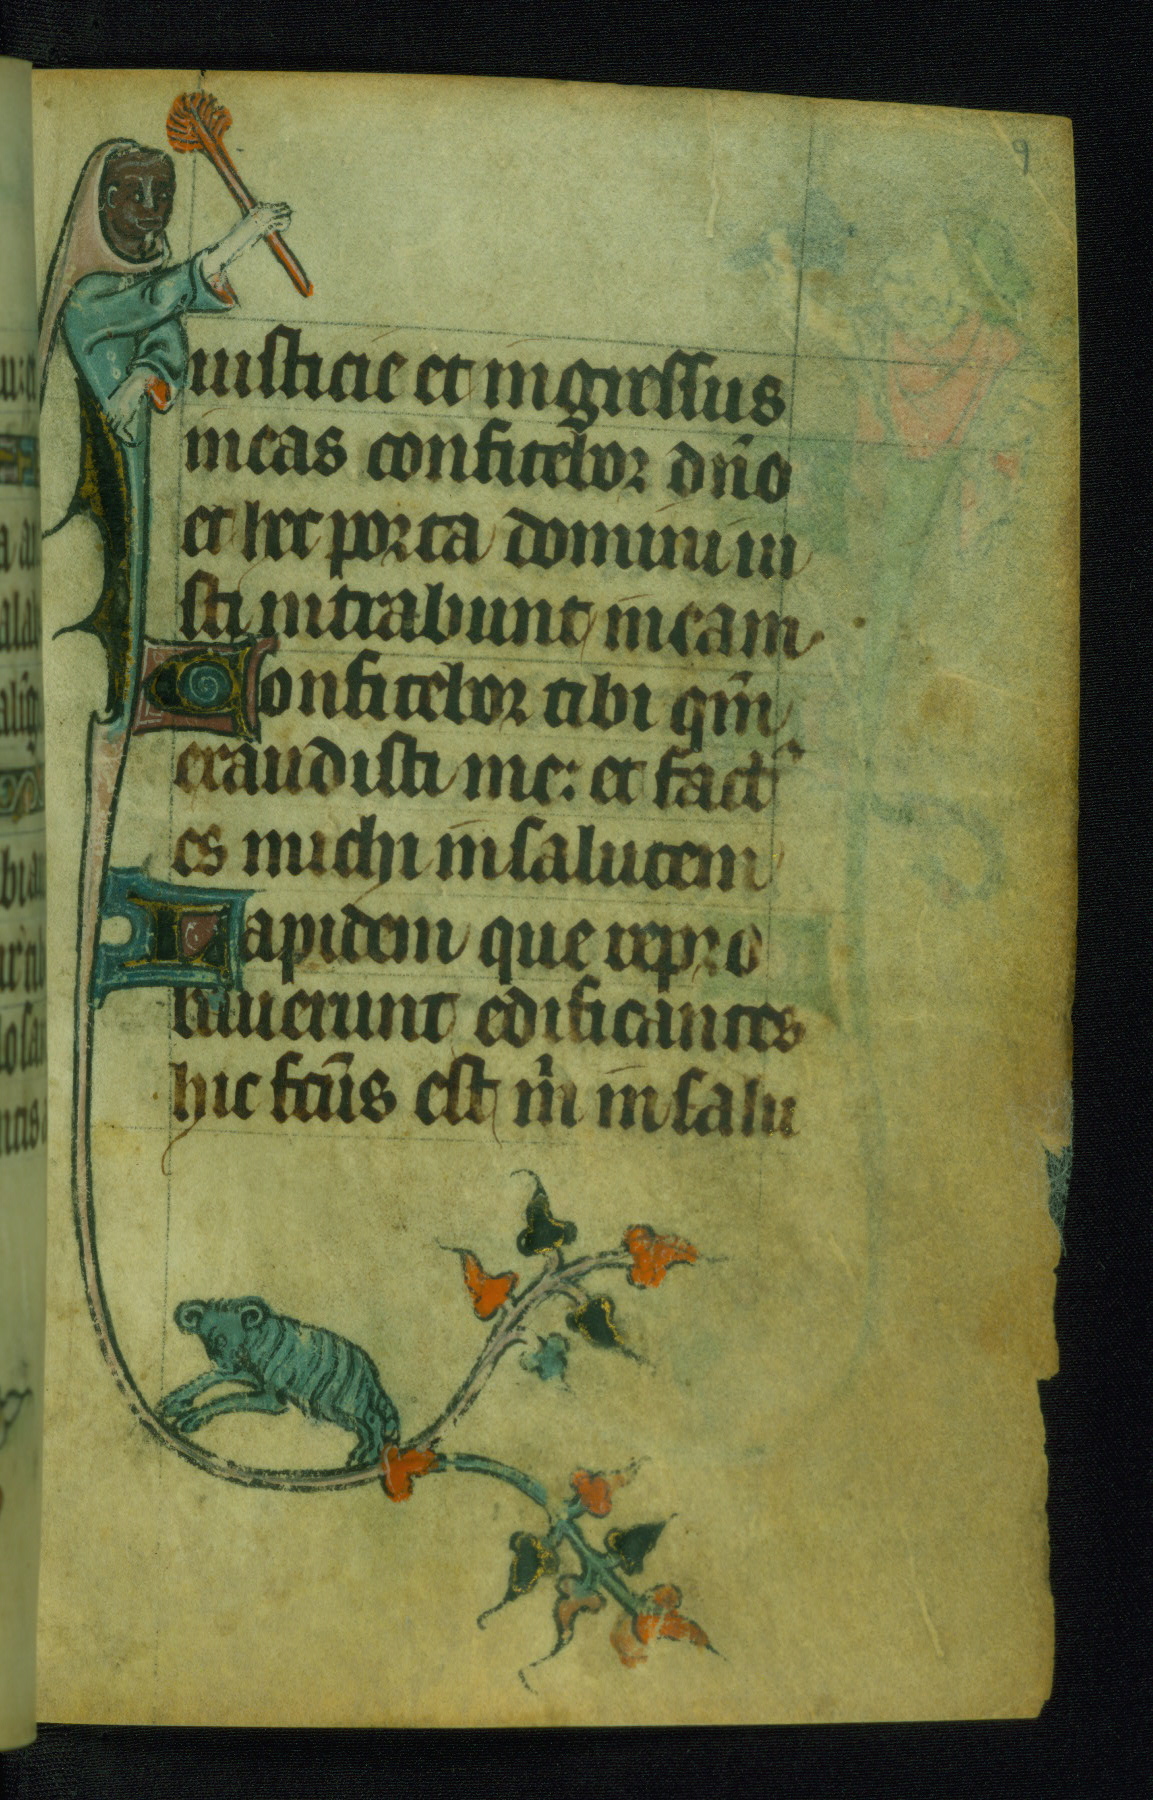 9
iusticie et ingressus
in eas confitebor dño
et hec porta domini iu
sti intrabunt in eam
Confitebor tibi qm̃
exaudisti me: et fact᷒
es michi in salutem
Lapidem que repro
bauerunt edificantes
hic fcũs est m̃ in salu